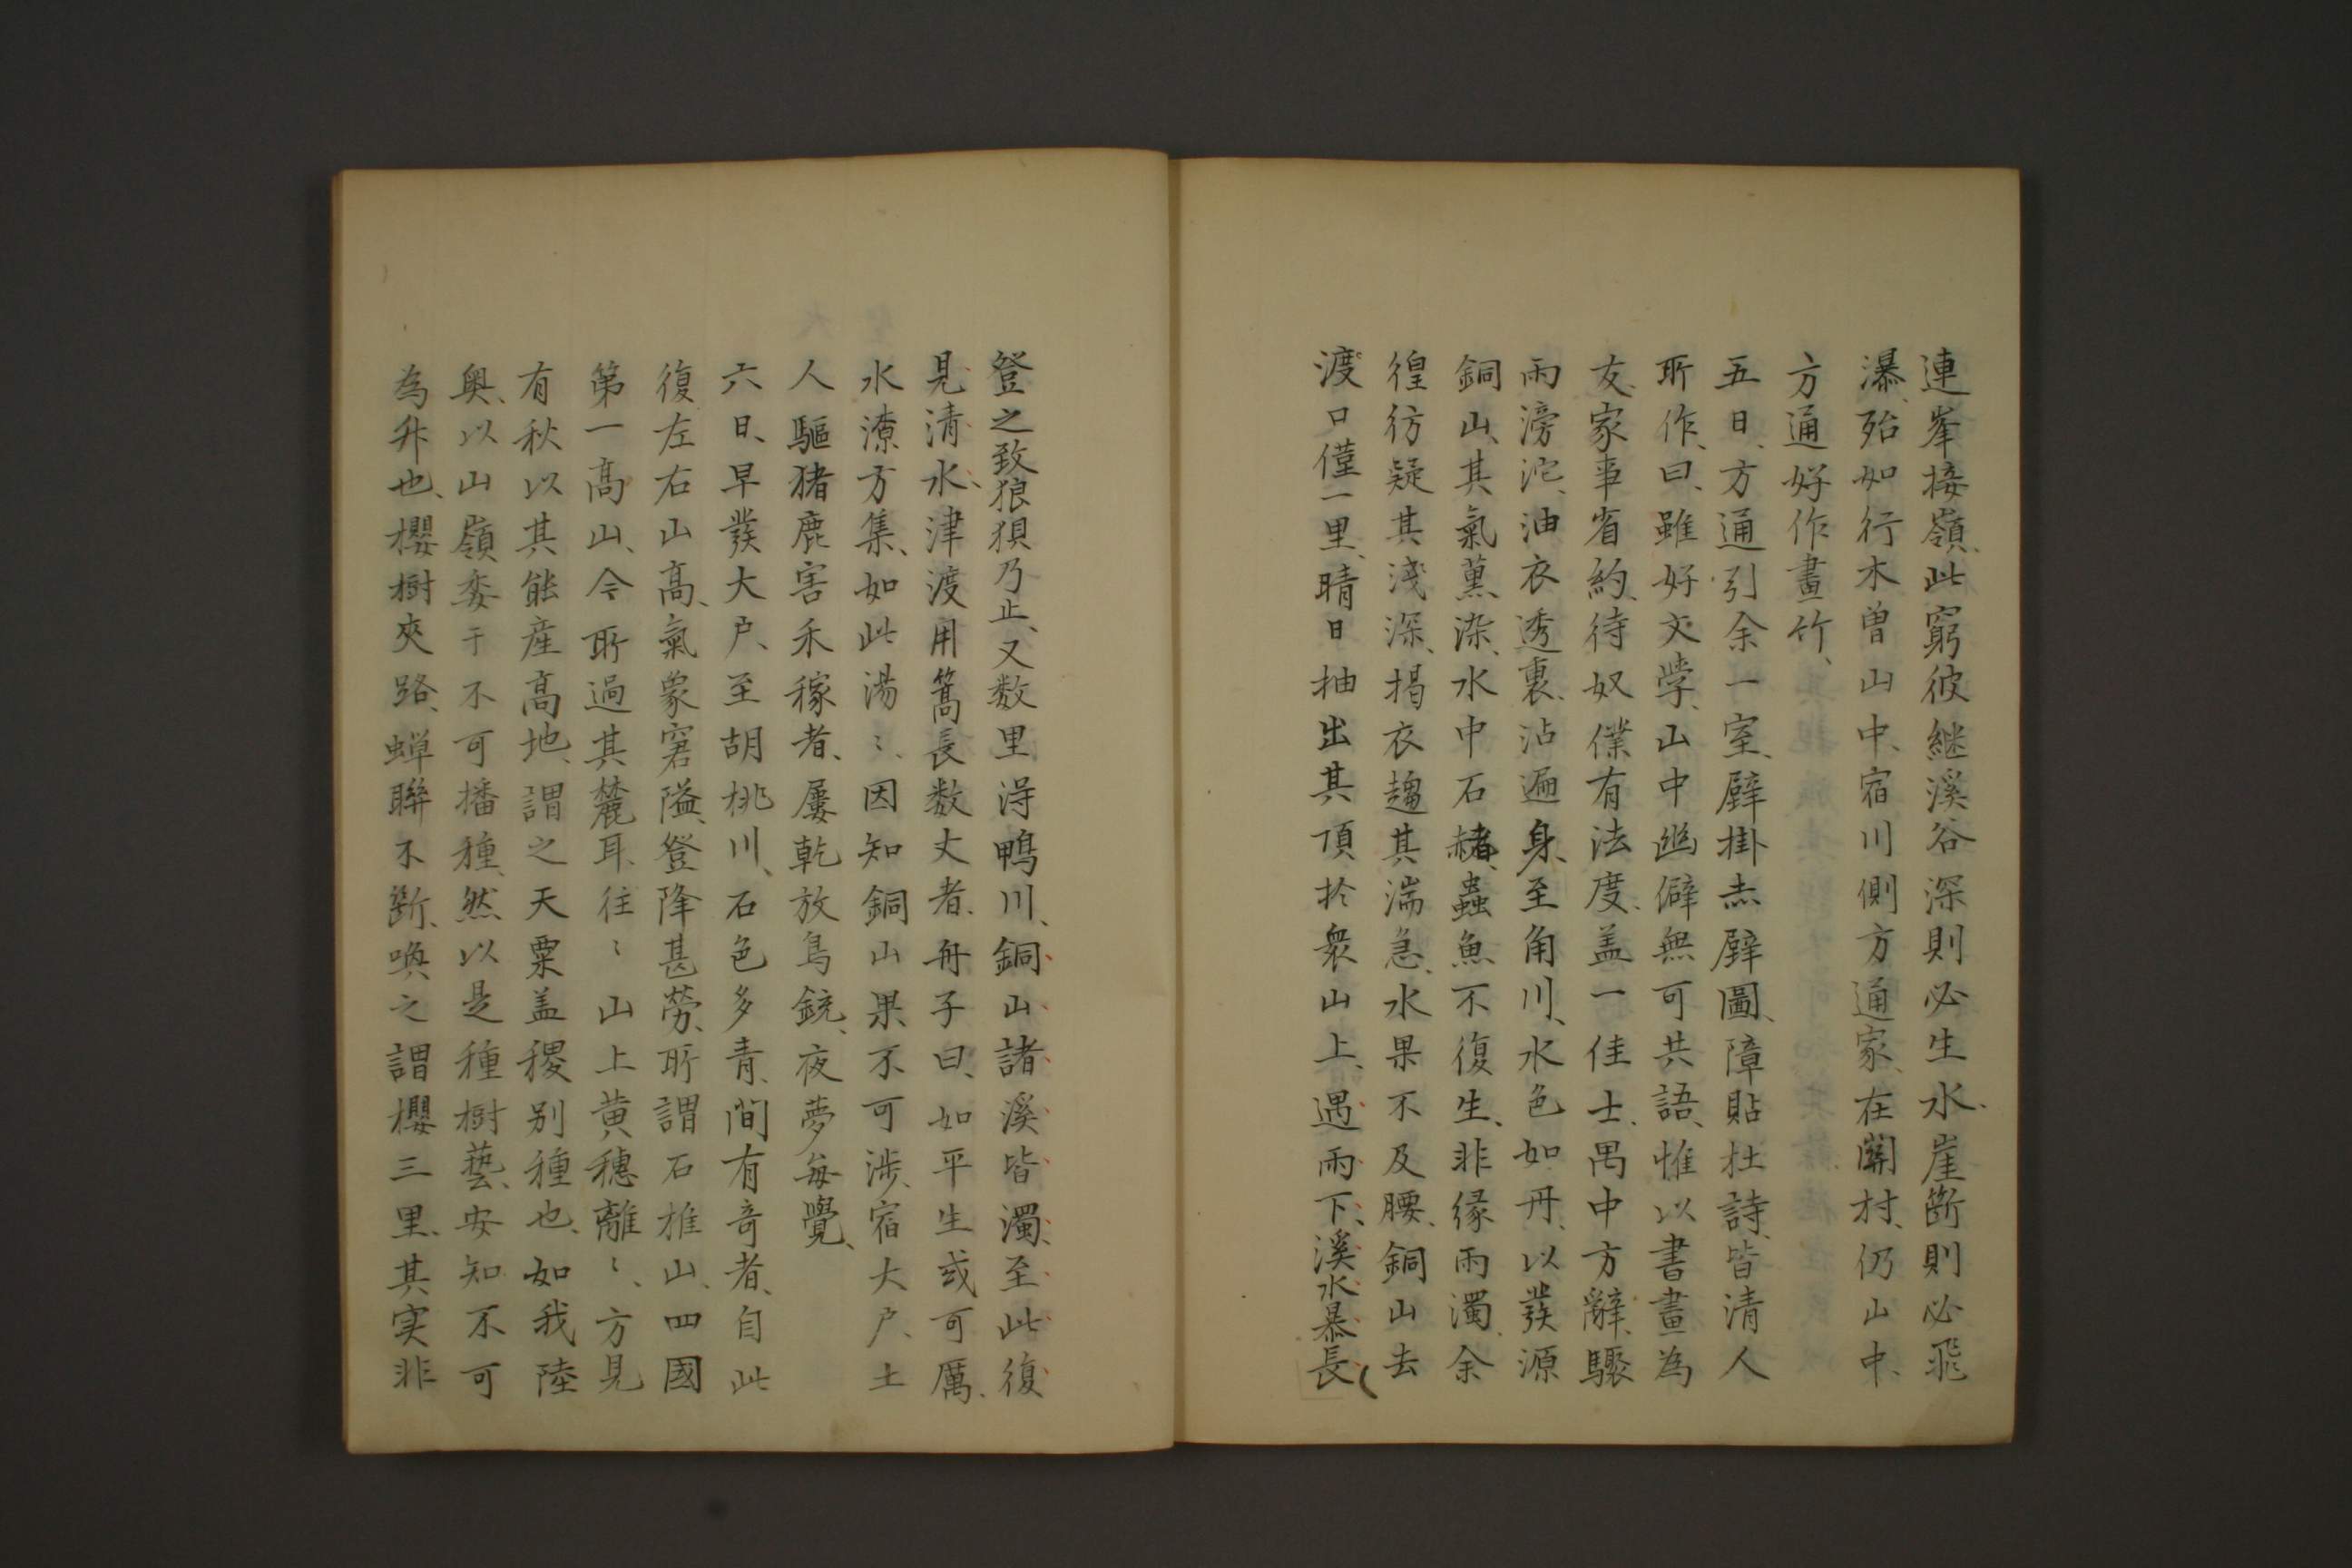 連峯接嶺、此窮彼継溪谷深則必生水、崖斷則必飛
瀑、殆如行木曽山中、宿川側方通家、在關村、仍山中、
方通好作畫竹、
五日、方通引余一室、壁掛赤壁圖、障貼杜詩、皆清人
所作、曰、雖好文學、山中幽僻無可共語、惟以書畫為
友、家事省約、待奴僕有法度、盖一佳士、禺中方辭、驟
雨滂沱、油衣透裏、沾遍身、至角川、水色如丹、以發源
銅山、其氣薫染、水中石赭、蟲魚不復生、非縁雨濁、余
徨彷疑其淺深、揭衣趨其湍急、水果不及腰、銅山去
渡口僅一里、晴日抽出其頂於衆山上、遇雨下、溪水暴長
登之致狼狽乃止、又数里淂鴨川、銅山諸溪皆濁、至此復
見清水、津渡用篙長数丈者、舟子曰、如平生或可厲、
水潦方集、如此湯〻、因知銅山果不可渉、宿大戸、土
人驅猪鹿害禾稼者、屢乾放鳥銃、夜夢毎覺、
六日、早發大戸、至胡桃川、石色多青、間有奇者、自此
復左右山高、氣象窘隘、登降甚勞、所謂石椎山、四國
第一高山、今所過其麓耳、往〻山上黄穗離〻、方見
有秋以其能産高地、謂之天粟盖稷别種也、如我陸
奥、以山嶺委于不可播種、然以是種樹藝、安知不可
為升也、櫻樹夾路、蝉聨不斷、喚之謂櫻三里、其实非